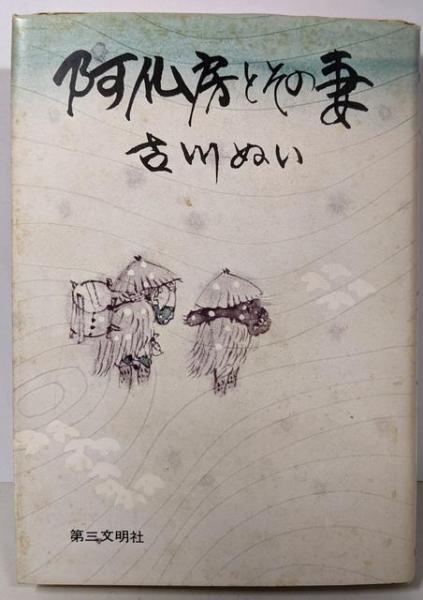 阿仏房とその妻
古川ぬい
第三文明社